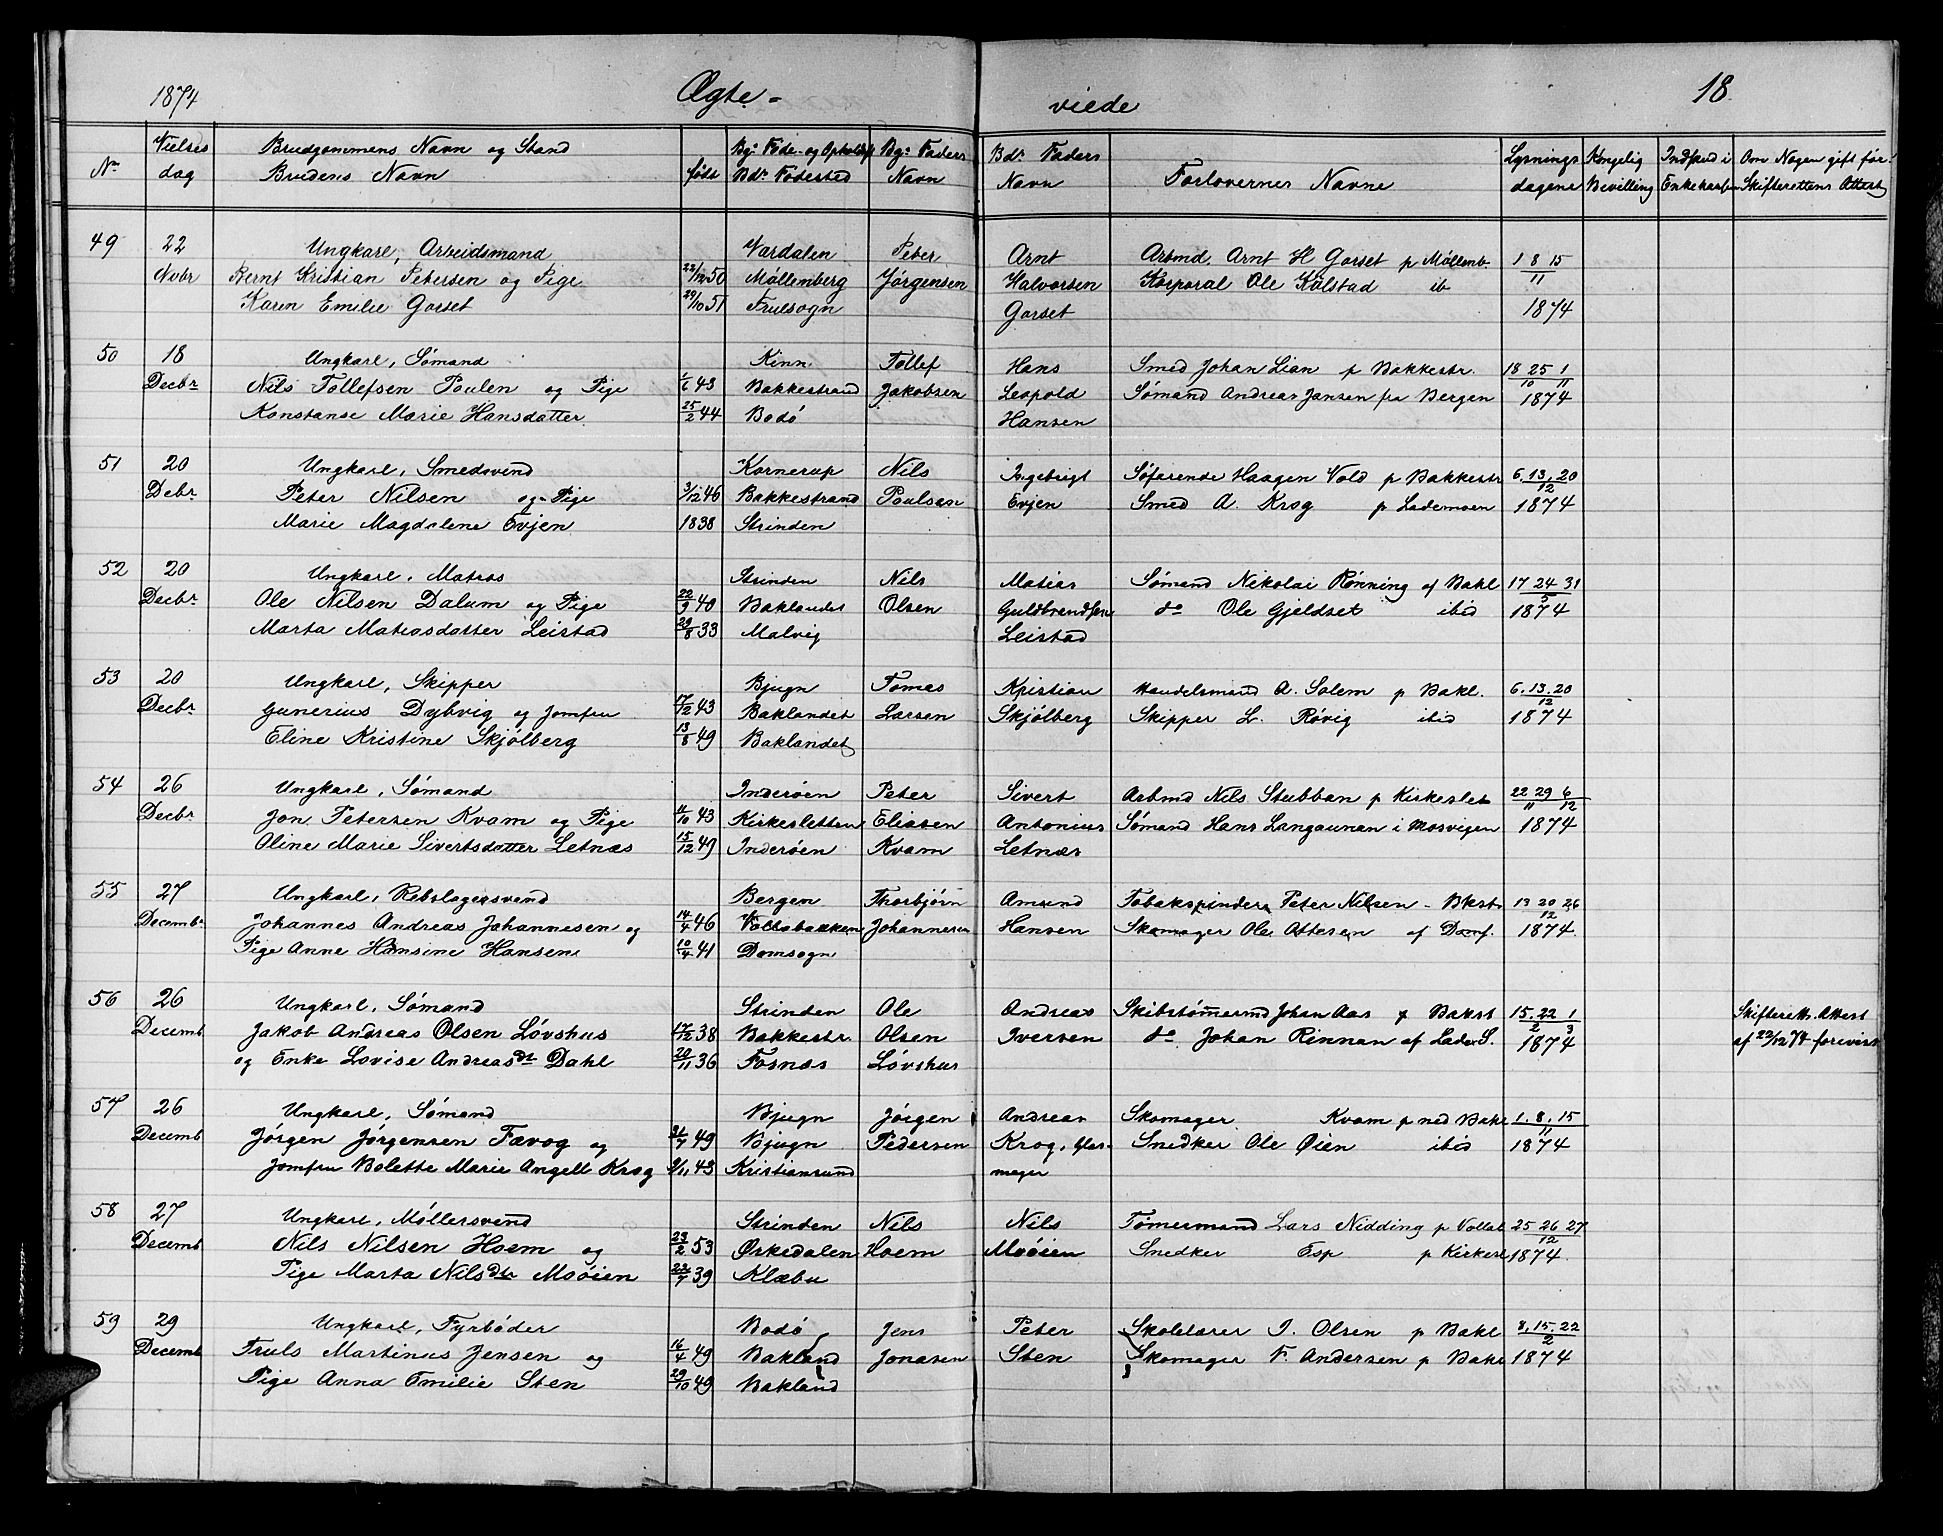 1874 Ægte- viede 18
No Vielses dag Brudgommens Navn og Stand Brudens Navn født Bg: Føde- og Opholdst Bdr Fødested Bg: Faders Navn Bdr Faders Navn Forlovernes Navne Lysnings dagene Kongelig Bevilling Indskud i Enkekassen Om Nogen gift før: Skifterettens Attest
49 22 Ungkarl, Arbeidsmand Værdalen Peter Arnt Arbmd. Arnt H Gorset p Møllenb. 1 8 15
Novbr Bernt Kristian Petersen og Pige 22/12 50 Møllenberg Jørgensen Halvorsen Korporal Ole Kulstad ib 11
Karen Emilie Gorset 29/10 51 Fruesogn Gorset 1874
50 18 Ungkarl, Sømand Kinn Tollef Hans Smed Johan Lian p Bakkestr. 18 25 1
Decbr Nils Tollefsen Poulen og Pige 1/6 43 Bakkestrand Jakobsen Leopold Sømand Andreas Jansen fra Bergen 10 11 1874
Konstanse Marie Hansdatter 25/2 44 Bodø Hansen
51 20 Ungkarl, Smedsvend Kornerup Nils Ingebrigt Søfarende Haagen Vold p Bakkestr 6. 13. 20
Debr Peter Nilsen og Pige 3/12 46 Bakkestrand Poulsen Evjen Smed A. Krog p Lademoen 12 1874
Marie Magdalene Evjen 1838 Strinden
52 20 Ungkarl, Matros Strinden Nils Matias Sømand Nikolai Rønning af Bakl 17 24 31
Decbr Ole Nilsen Dalum og Pige 22/9 40 Baklandet Olsen Guldbrandsen do Ole Gjeldset ibid 5 1874
Marta Matiasdatter Leistad 29/8 33 Malvig Leistad
53 20 Ungkarl, Skipper Bjugn Tomas Kristian Handelsmand A. Solem p Bakl. 6. 13. 20
Decbr Gunerius Dybvig og Jomfru 17/2 43 Baklandet Larsen Skjølberg Skipper L. Røvig ibid 12 1874
Eline Kristine Skjølberg 13/8 49 Baklandet
54 26 Ungkarl, Sømand Inderøen Peter Sivert Arbmd Nils Stubban p Kirkeslet 22 29 6
Decbr Jon Petersen Kvam og Pige 11/10 43 Kirkesletten Eliasen Antonius Sømand Hans Langaunan i Mosvigen 11 12 1874
Oline Marie Sivertsdatter Letnæs 15/12 49 Inderøen Kvam Letnæs
55 27 Ungkarl, Rebslagersvend Bergen Thorbjørn Amund Tobakspinder Peter Nilsen - Bkst 13 20 26
Decembr Johannes Andreas Johannesen og 14/4 46 Vollabakken Johannesen Hansen Skomager Ole Ottesen af Domf. 12 1874.
Pige Anne Hansine Hansen 10/4 41 Domsogn
56 26 Ungkarl, Sømand Strinden Ole Andreas Skibstømermd Johan Aas p Bakst 15. 22 1 Skifterets. Attest
Decemb Jakob Andreas Olsen Løvshus 17/12 38 Bakkestr. Olsen Iversen do Johan Rinnan af Lade S. 2 3 1874 af 22/12 74 forevist
og Enke Lovise Andreasdtr Dahl 20/11 36 Fosnæs Løvshus
57 26 Ungkarl, Sømand Bjugn Jørgen Andreas Skomager Kvam p ned Bakl 1. 8. 15
Decemb Jørgen Jørgensen Fævog og 31/7 49 Bjugn Pedersen Krog, Snedker Ole Øien ibid 11 1874
Jomfru Bolette Marie Angell Krog 9/11 43 Kristiansund mager
58 27 Ungkarl, Møllersvend Strinden Nils Nils Tømermand Lars Nidding p Vollab 25 26 27
Decemb Nils Nilsen Hoem og 23/2 53 Ørkedalen Hoem Moøien Snedker Esp p Kirkesl 12 1874.
Pige Marta Nilsdtr Moøien 22/7 39 Klæbu
59 29 Ungkarl, Fyrbøder Bodø Jens Peter Skolelærer I. Olsen p Bakl 8. 15. 22
Decemb Truls Martinus Jensen og 16/4 49 Bakland Jonasen Sten Skomager F. Andersen p Bakl 2 1874
Pige Anna Emilie Sten 29/10 49 Bakland